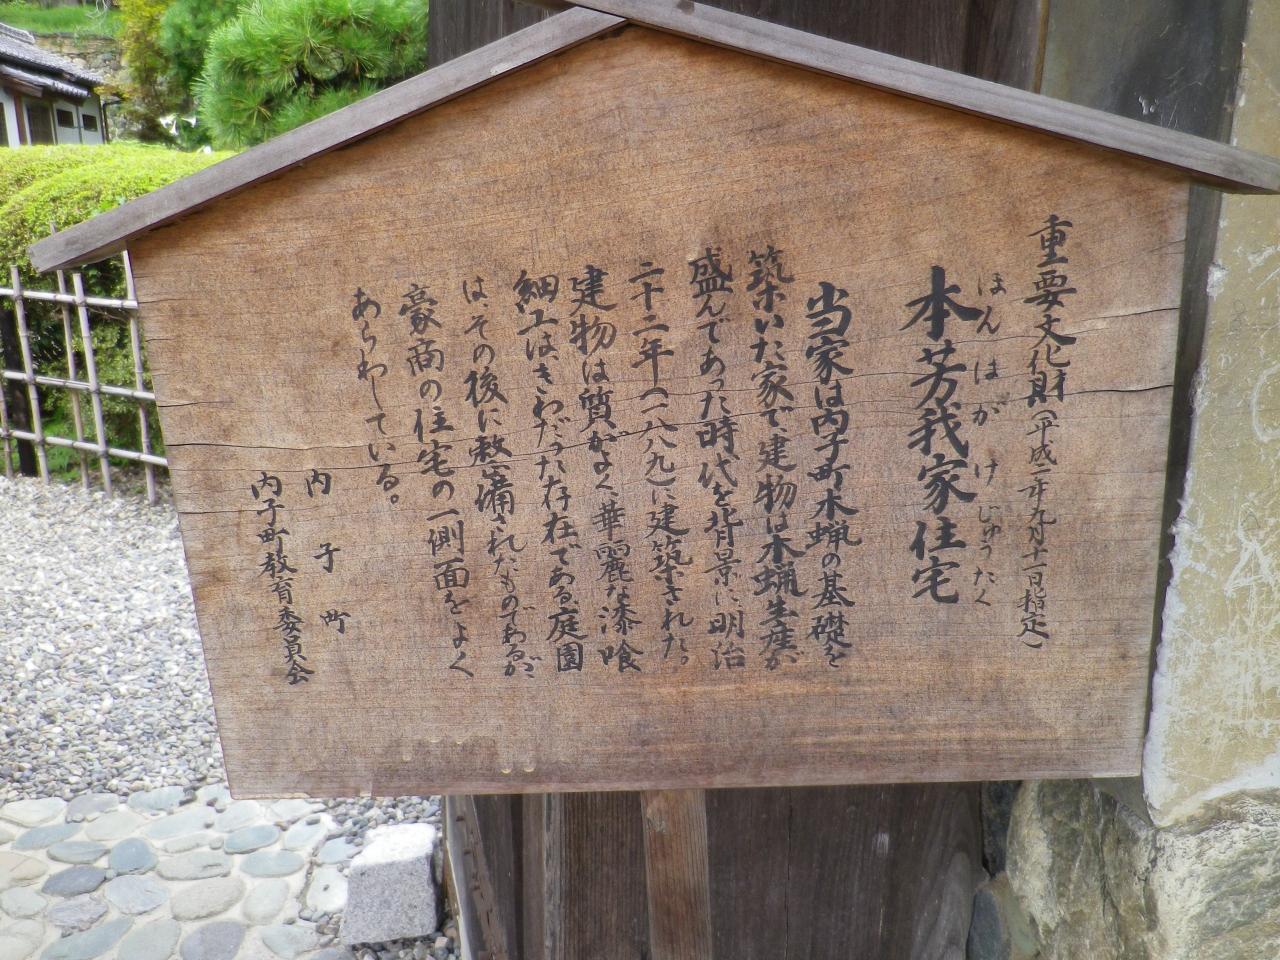 重要文化財(平成二年九月十一日指定)
ほんはがけじゅうたく
本芳我家住宅
当家は内子町木蝋の基礎を
築いた家で、建物は木蝋生産が
盛んであった時代を背景に、明治
二十二年(一八八九)に建築された。
建物は質がよく、華麗な漆喰
細工はきわだった存在である。庭園
はその後に整備されたものであるが、
豪商の住宅の一側面をよく
あらわしている。
内子町
内子町教育委員会